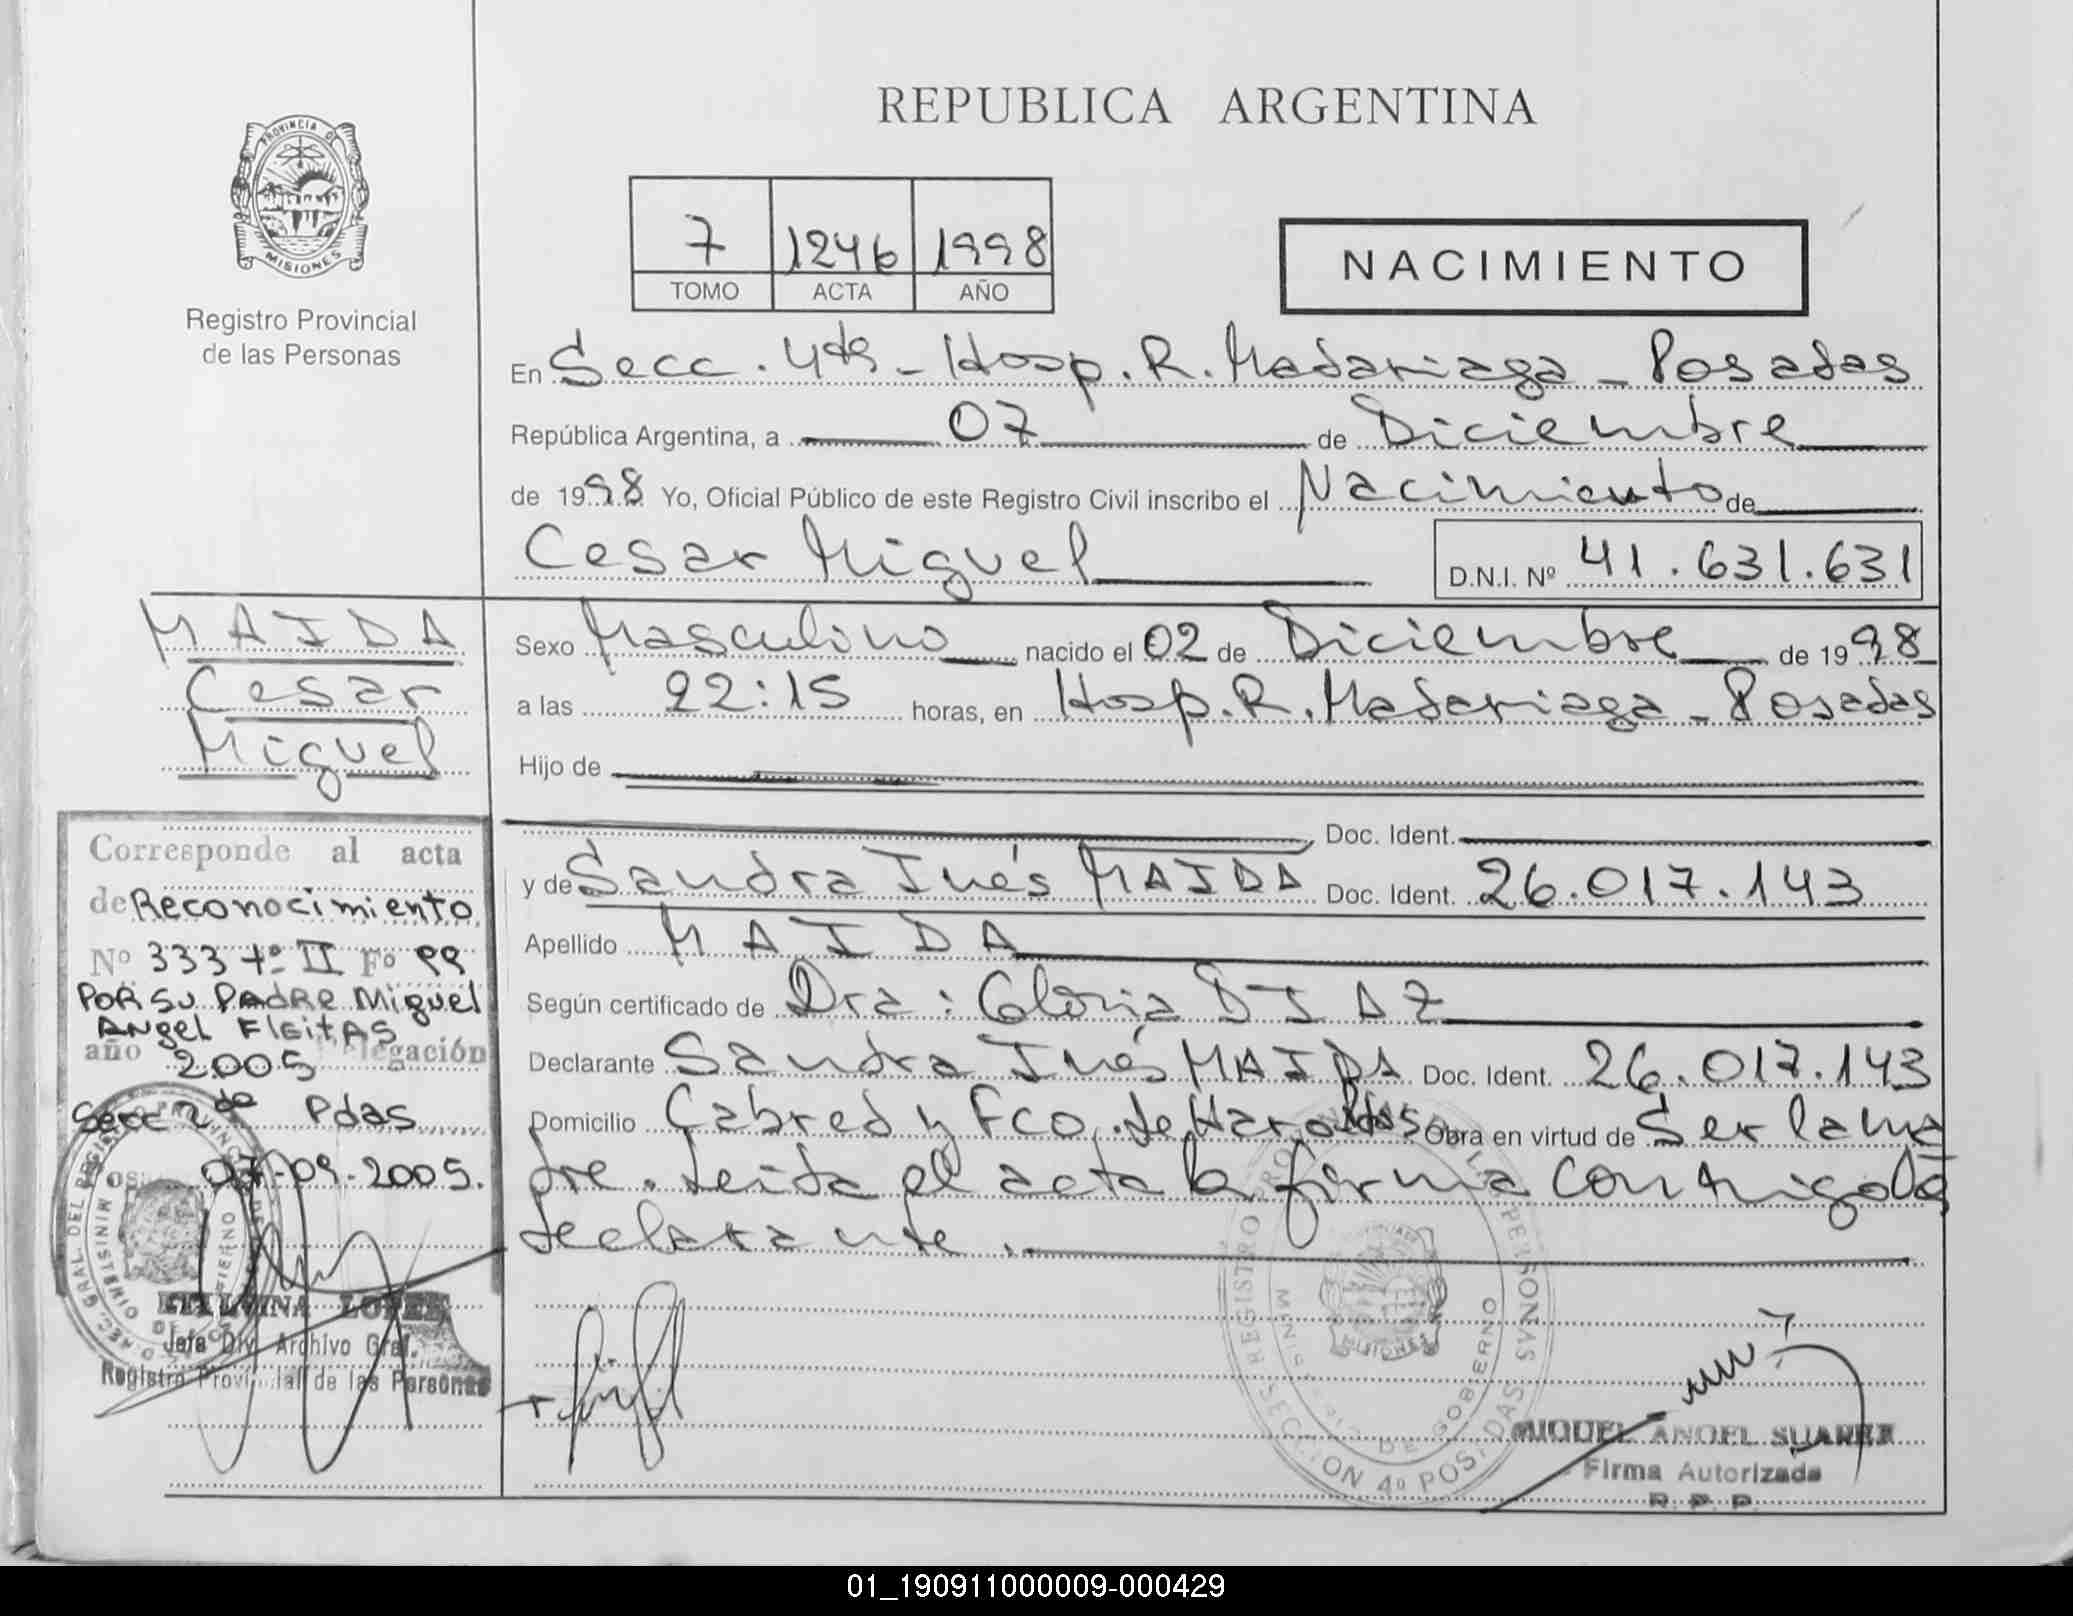 REPUBLICA ARGENTINA
PROVINCIA DE
MISIONES
Registro Provincial
de las Personas
7 1246 1998
TOMO ACTA AÑO
NACIMIENTO
En Secc. 4ta - Hosp. R. Madariaga - Posadas
República Argentina, a 07 de Diciembre
de 1998 Yo, Oficial Público de este Registro Civil inscribo el Nacimiento de
Cesar Miguel D.N.I. Nº 41.631.631
MAIDA
Cesar
Miguel
Sexo Masculino nacido el 02 de Diciembre de 1998
a las 22:15 horas, en Hosp. R. Madariaga - Posadas
Hijo de
Doc. Ident.
y de Sandra Inés MAIDA Doc. Ident. 26.017.143
Apellido MAIDA
Según certificado de Dra: Gloria DIAZ
Declarante Sandra Inés MAIDA Doc. Ident. 26.017.143
Domicilio Cabred y Fco. de Haro Pdas Obra en virtud de Ser la ma
dre. Leida el acta la firma conmigo la
declarante.
Corresponde al acta
de Reconocimiento
Nº 333 tº II Fº 99
POR SU PADRE Miguel
ANgel FleitAS
año 2005 Delegación
Secc 2da Pdas
07-09-2005.
LOPEZ
Jefa Div. Archivo Gral.
Registro Provincial de las Personas
REGISTRO PROVINCIAL DE LAS PERSONAS
DE GOBIERNO
MISIONES
SECCION 4º POSADAS
MIGUEL ANGEL SUAREZ
Firma Autorizada
R. P. P.
01_190911000009-000429